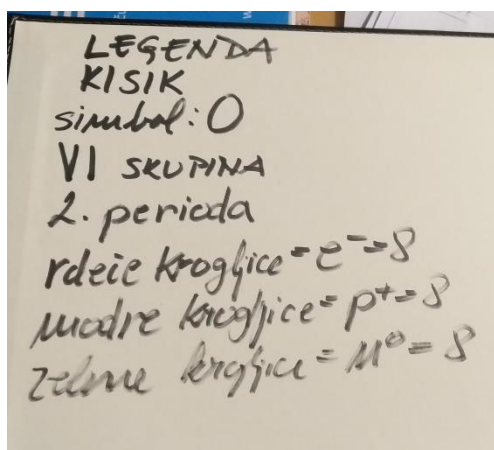 LEGENDA
KISIK
simbol: O
VI SKUPINA
2. perioda
rdeče krogljice = e⁻ = 8
modre krogljice = p⁺ = 8
zelene krogljice = n⁰ = 8